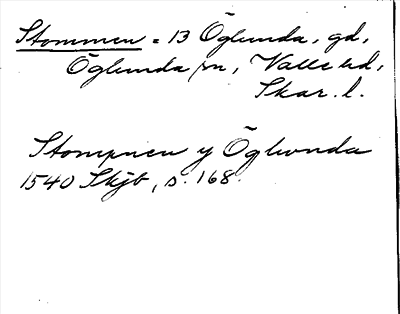 Stommen = 13 Öglunda, gd,
Öglunda sn, Valle hd,
Skar. l.
Stompnen y Öglwnda
1540 Skjb, s. 168.